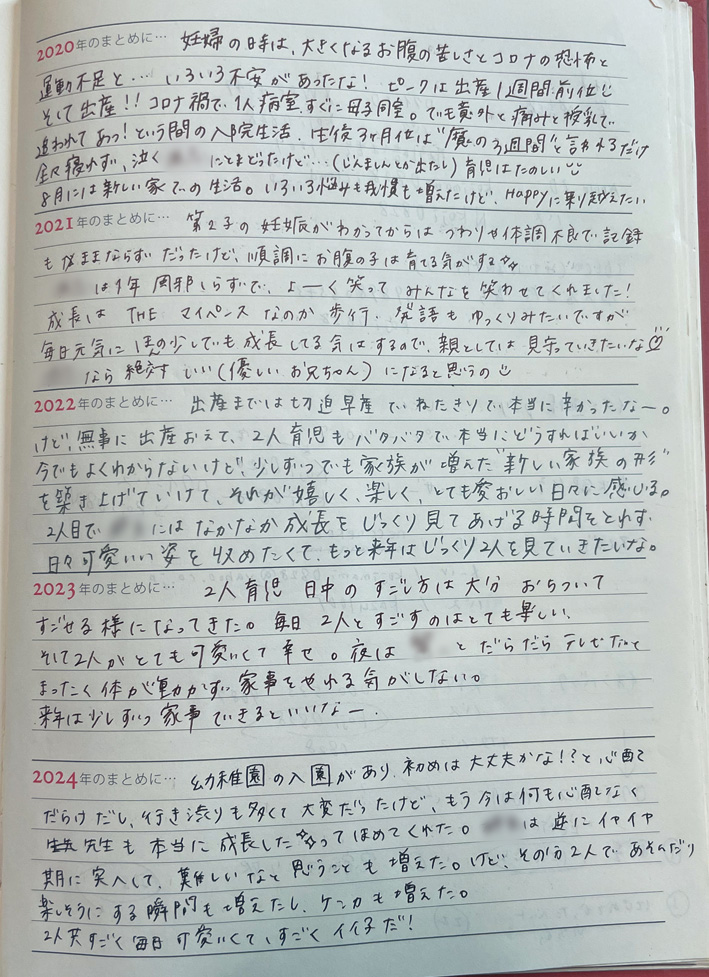 2020年のまとめに… 妊婦の時は、大きくなるお腹の苦しさとコロナの恐怖と
運動不足と… いろいろ不安があったな! ピークは出産1週間前位
そして出産!! コロナ禍で、1人病室、すぐに母子同室。でも意外と痛みと授乳で
追われてあっ!という間の入院生活。生後3ヶ月位は"魔の3週間"と言われるだけ
全々寝れず、泣く にとまどったけど…(じんましんとか出たし)育児はたのしい
8月には新しい家での生活。いろいろ悩みも我慢も増えたけど、Happyに乗り越えたい
2021年のまとめに… 第2子の妊娠がわかってからは つわりや体調不良で記録
もままならずだったけど、順調にお腹の子は育てる気がする
は1年 風邪しらずで、よーく笑って みんなを笑わせてくれました!
成長は THE マイペンス なのか 歩行、発語も ゆっくりみたいですが
毎日元気に ほんの少しでも成長してる気はするので、親としては 見守っていきたいな♡
なら 絶対 いい(優しい お兄ちゃん)になると思うの
2022年のまとめに… 出産までは切迫早産で ねたきりで本当に辛かったなー。
けど、無事に出産おえて、2人育児もバタバタで本当にどうすればいいか
今でもよくわからないけど、少しずつでも家族が増えた"新しい家族の形"
を築き上げていけて、それが嬉しく、楽しく、とても愛おしい日々に感じる。
2人目で にはなかなか成長をじっくり見てあげる時間をとれず、
日々可愛いい姿を収めたくて、もっと来年はじっくり2人を見ていきたいな。
2023年のまとめに… 2人育児 日中の すごし方は 大分 おちついて
すごせる様になってきた。毎日 2人とすごすのはとても楽しい、
そして2人がとても可愛いくて幸せ。夜は とだらだらテレビだと
まったく体が動かず 家事をやれる気がしない。
来年は少しずつ家事できるといいなー。
2024年のまとめに… 幼稚園の入園があり、初めは大丈夫かな!?と心配
だらけだし、行き渋りも多くて大変だったけど、もう今は何も心配なく
先生も本当に成長した ってほめてくれた。 は逆にイヤイヤ
期に突入して、難しいなと思うことも増えた。けど、その分2人であそんだり
楽しそうにする瞬間も増えたし、ケンカも増えた。
2人共すごく毎日可愛いくて、すごくイイ子だ!